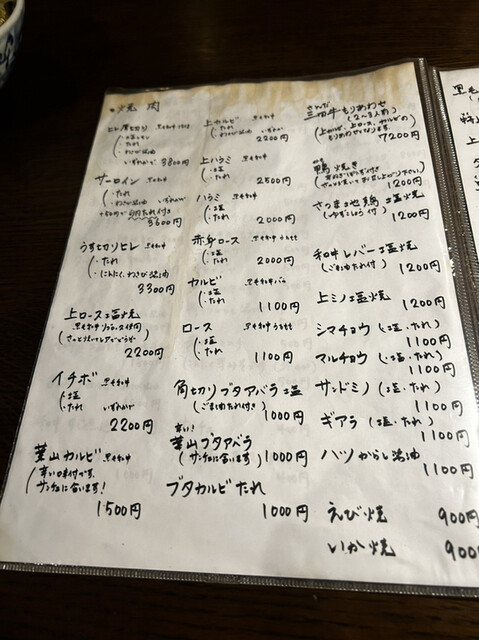 ・焼肉
ヒレ厚切り
いずれかで 3800円
サーロイン
・たれ
卵たれ付き
3600円
うす切りヒレ 黒毛和牛
・たれ
・にんにくわさび醤油
3300円
上ロース塩焼
2200円
イチボ 黒毛和牛
・塩
・たれ いずれかで
2200円
葉山カルビ 黒毛和牛
辛い味付です。
サンチュに合います!
1500円
上カルビ 黒毛和牛
・たれ
・わさび醤油 いずれかで
2200円
上ハラミ
・塩
・たれ
2500円
ハラミ
・塩
・たれ
2000円
赤身ロース 黒毛和牛うちもも
・塩
・たれ
2000円
カルビ 黒毛和牛バラ
・塩
・たれ
1100円
ロース 黒毛和牛うちもも
・塩
・たれ
1100円
角切りブタアバラ塩
(ごま油たれ付き)
1000円
辛い!
葉山ブタアバラ
(サンチュに合います) 1000円
ブタカルビたれ
1000円
さんだ
三田牛もりあわせ
(2〜3人前)
(上カルビ、上ロース、カルビの
もりあわせになります。)
7200円
鴨焼き
1200円
さつま地鶏 塩焼
(ゆずこしょう付)
1200円
和牛レバー塩焼
(ごま油たれ付) 1200円
上ミノ塩焼 1200円
シマチョウ (塩・たれ)
1100円
マルチョウ (・塩・たれ)
1100円
サンドミノ (塩・たれ)
1100円
ギアラ (塩・たれ)
1100円
ハツ からし醤油
1100円
えび焼 900円
いか焼 900